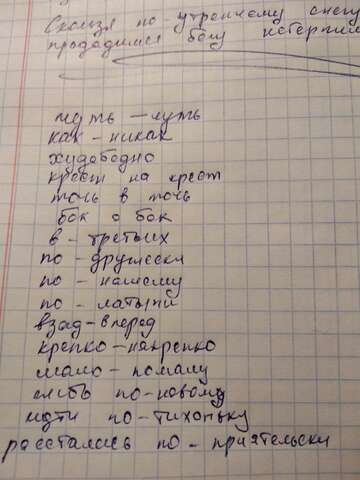 Скользя по утреннему снегу
предадимся бегу нетерпел
чуть – чуть
как – никак
худабодно
крест на крест
точь в точь
бок о бок
в – третьих
по – дружески
по – нашему
по – латыни
взад – вперед
крепко – накрепко
мало – помалу
жить по – новому
идти по – тихоньку
расстались по – приятельски